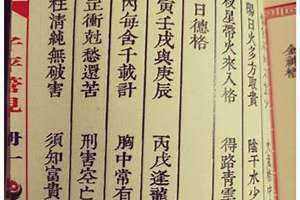 金神格
陽日火多方取貴 陰干水少
星帶火來入格 得路青雲
日德格
寅壬戌與庚辰 丙戌逢龍
內每含千載計 胸中常有
衝尅愁還苦 刑害空亡
柱清純無破害 須知富貴
子平管見 冊一